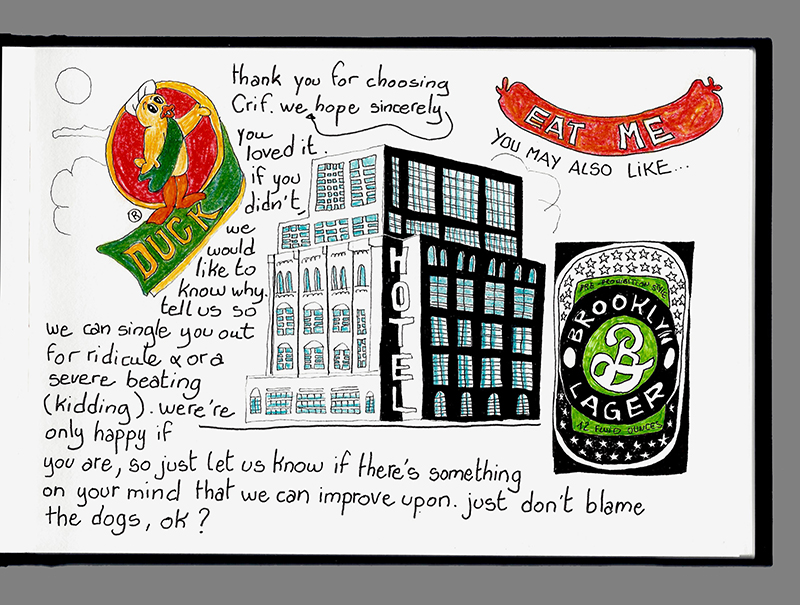 thank you for choosing
Crif. we hope sincerely
you
loved it.
if you
didn't,
we
would
like to
know why.
tell us so
we can single you out
for ridicule & or a
severe beating
(kidding). were're
only happy if
you are, so just let us know if there's something
on your mind that we can improve upon. just don't blame
the dogs, ok?
DUCK
®
HOTEL
EAT ME
YOU MAY ALSO LIKE...
PRE-PROHIBITION STYLE
BROOKLYN
B
LAGER
12 FLUID OUNCES